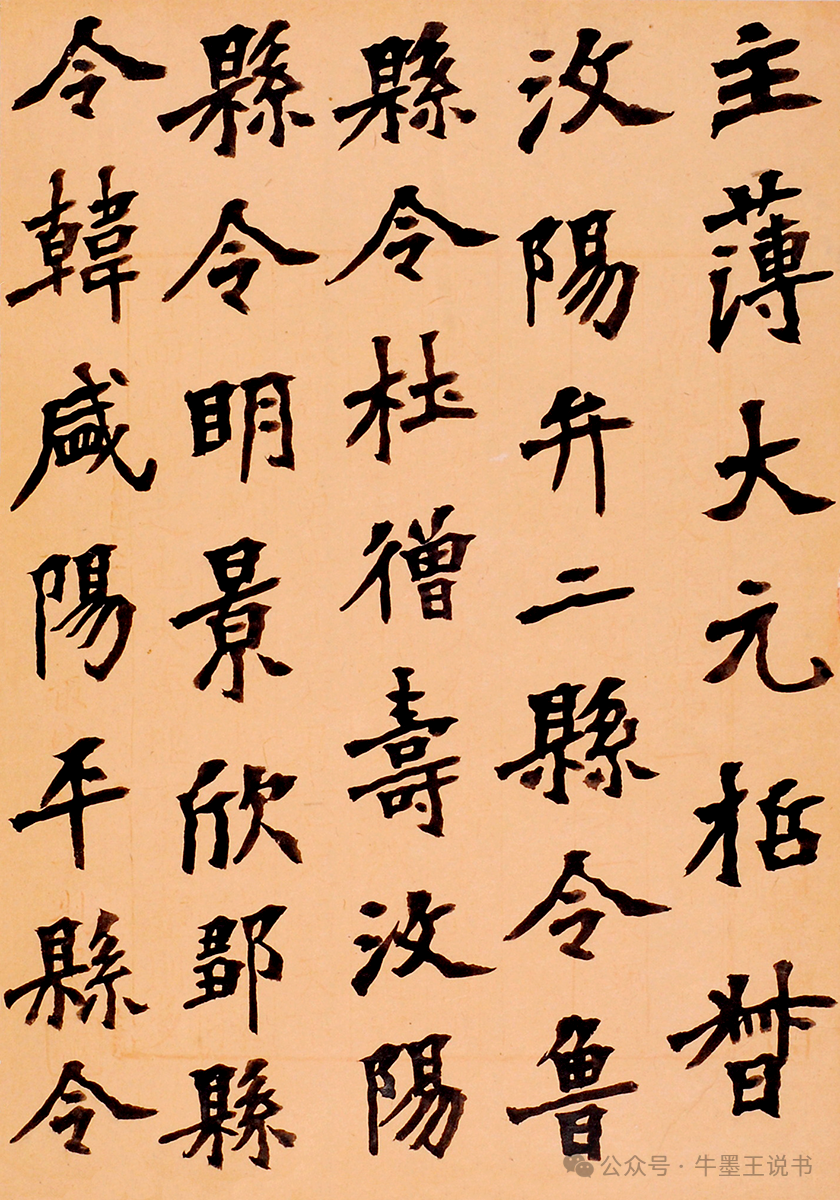 主薄大元栝督
汶陽弁二縣令魯
縣令杜僧壽汶陽
縣令明景欣鄒縣
令韓盛陽平縣令
公众号·牛墨王说书